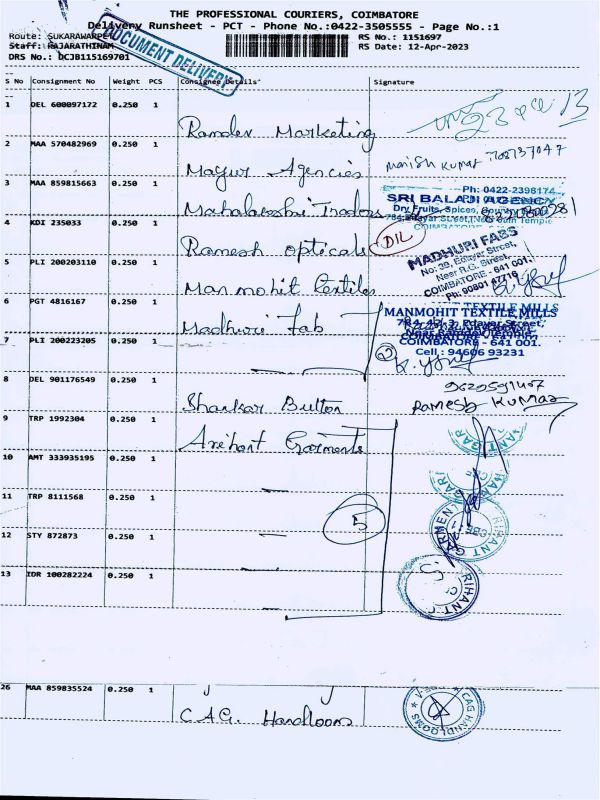 THE PROFESSIONAL COURIERS, COIMBATORE
Delivery Runsheet - PCT - Phone No.:0422-3505555 - Page No.:1
Route: SUKARAWARPE
RS No.: 1151697
Staff: RAJARATHINAM
RS Date: 12-Apr-2023
DRS No.: DCJB115169701
DOCUMENT DELIVERY
S No Consignment No Weight PCS Consignee Details Signature
1 DEL 600097172 0.250 1
Ramdev Marketing
2 MAA 570482969 0.250 1
Mayur Agencies
Manish Kumar
3 MAA 859815663 0.250 1
Mahalakshmi Traders
Ph: 0422-2398174
SRI BALAJI AGENCY
Dry Fruits, Spices,
4 KDI 235033 0.250 1
Ramesh opticals
DIL
MADHURI FABS
No: 39, Edayar Street,
Near R.G. Street,
COIMBATORE - 641 001.
5 PLI 200203110 0.250 1
Manmohit textiles
6 PGT 4816167 0.250 1
Madhuri fab
MANMOHIT TEXTILE MILLS
COIMBATORE - 641 001.
Cell : 94606 93231
7 PLI 200223205 0.250 1
8 DEL 901176549 0.250 1
Shankar Button
Ramesh Kumar
9 TRP 1992304 0.250 1
Arihant Garments
10 AMT 333935195 0.250 1
11 TRP 8111568 0.250 1
5
12 STY 872873 0.250 1
13 IDR 100282224 0.250 1
26 MAA 859835524 0.250 1
C.A.G. Handlooms
CAG HANDLOOMS